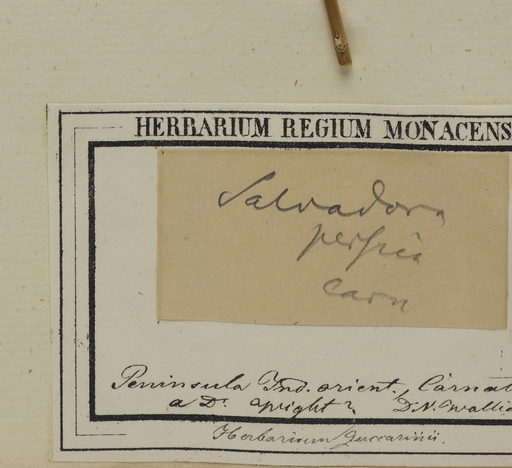 HERBARIUM REGIUM MONACENS
Salvadora
persica
Carn
Peninsula Ind. orient., Carnat
a Dr. Wight? D. N. Wallic
Herbarium Zuccarinii.